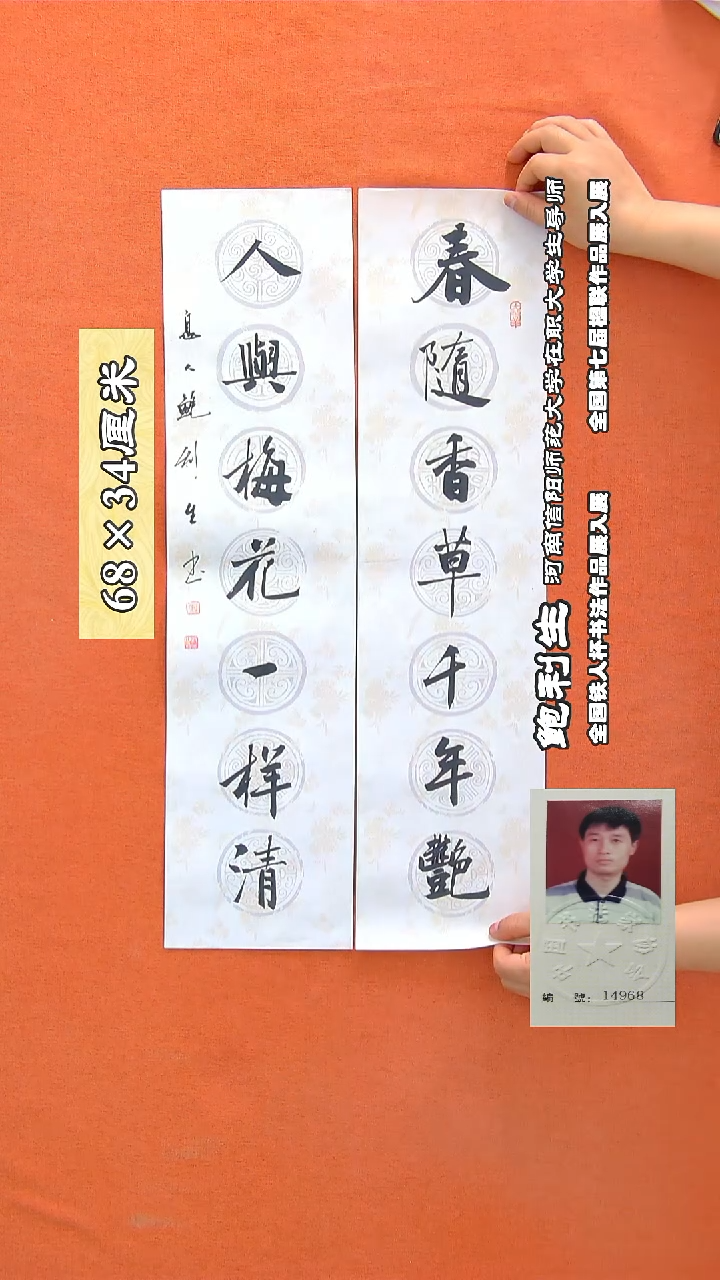 春隨香草千年艷
人與梅花一样清
息人鲍利生书
68×34厘米
鲍利生
河南信阳师范大学在职大学生导师
全国铁人杯书法作品展入展
全国第七届楹联作品展入展
編 號: 14968